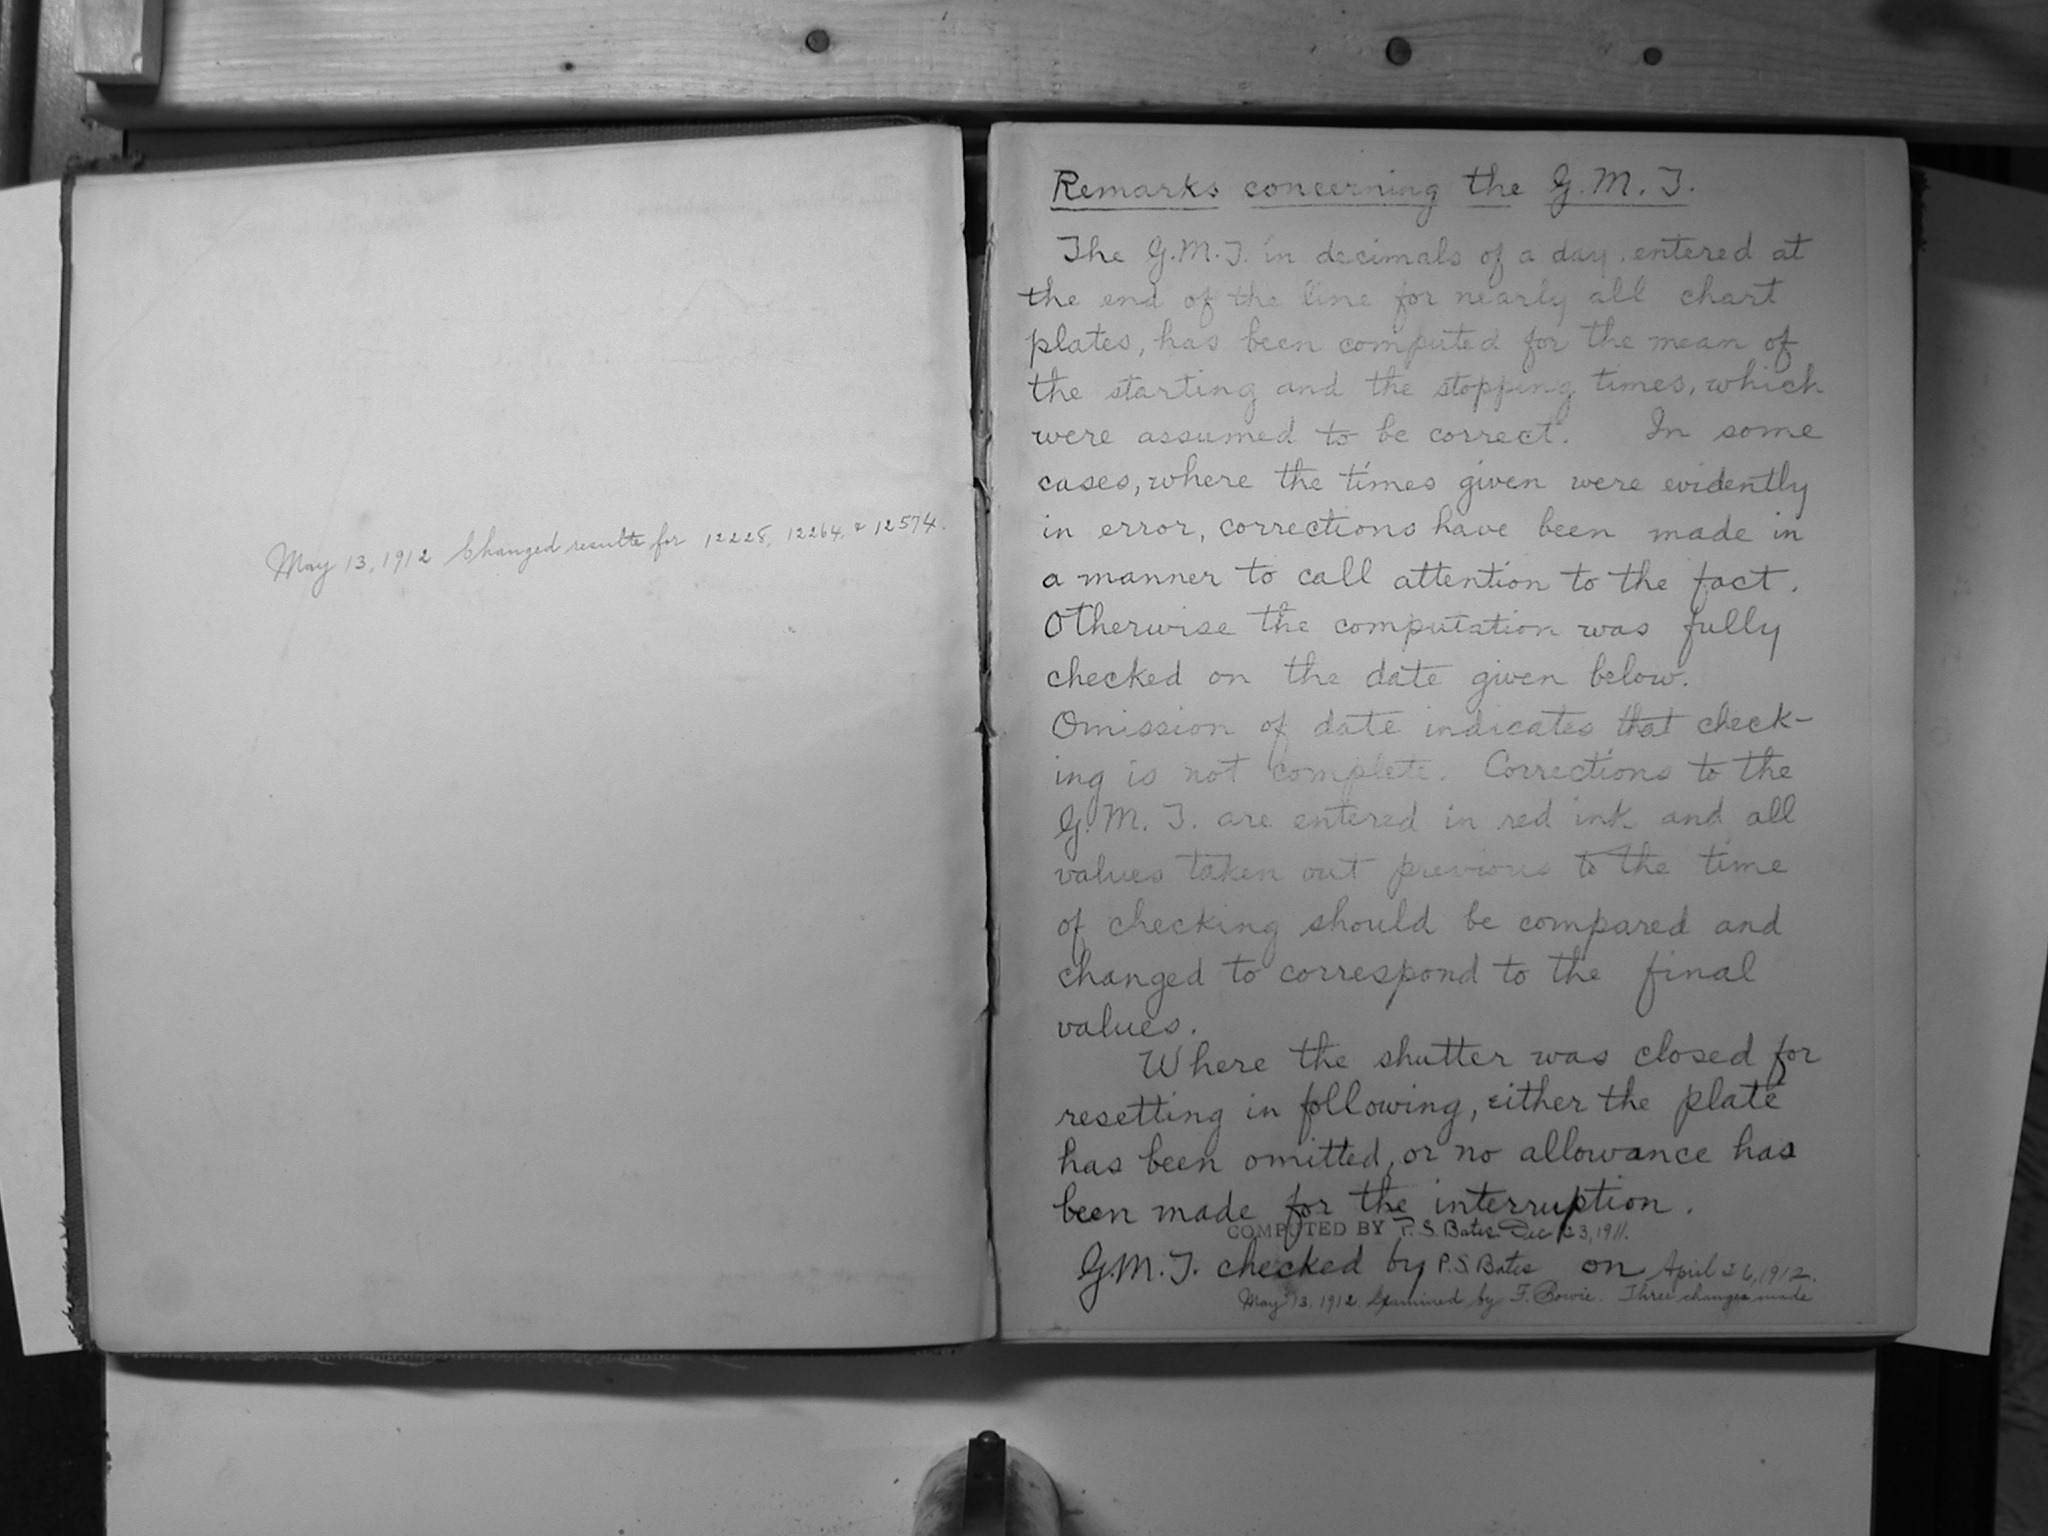 May 13, 1912 Changed results for 12228, 12264, & 12574.
Remarks concerning the G.M.T.
The G.M.T. in decimals of a day, entered at
the end of the line for nearly all chart
plates, has been computed for the mean of
the starting and the stopping times, which
were assumed to be correct. In some
cases, where the times given were evidently
in error, corrections have been made in
a manner to call attention to the fact.
Otherwise the computation was fully
checked on the date given below.
Omission of date indicates that check-
ing is not complete. Corrections to the
G.M.T. are entered in red ink and all
values taken out previous to the time
of checking should be compared and
changed to correspond to the final
values.
Where the shutter was closed for
resetting in following, either the plate
has been omitted, or no allowance has
been made for the interruption.
COMPUTED BY P. S. Bates Dec 23, 1911.
G.M.T. checked by P.S. Bates on April 26, 1912.
May 13, 1912. Examined by F. Bowie. Three changes made